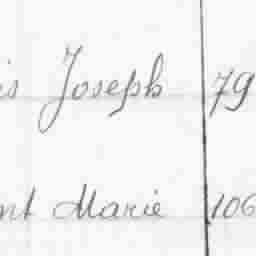 is Joseph 79
nt Marie 106